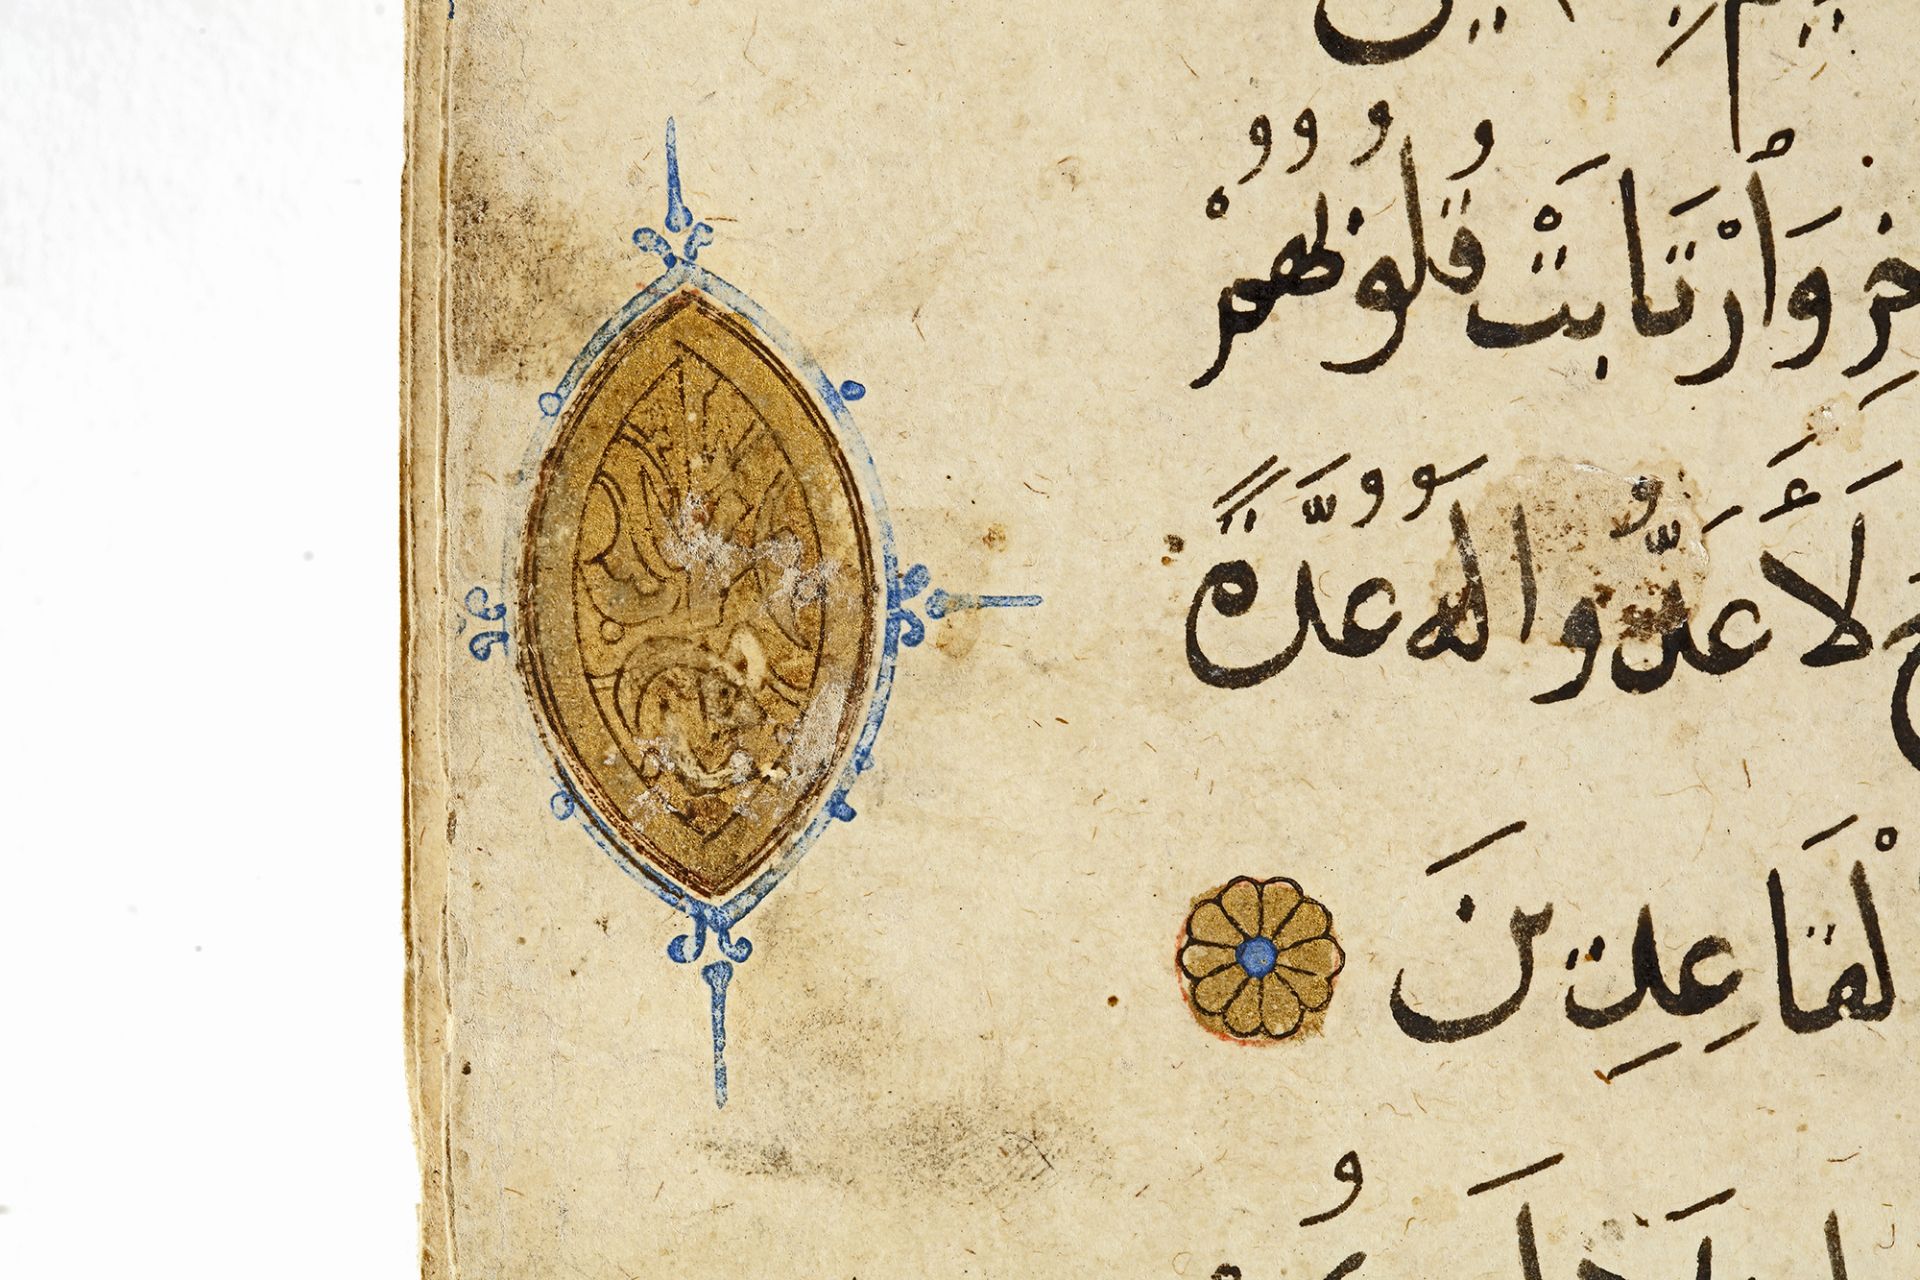 خِرِ وَارْتَابَتْ قُلُوبُهُمْ
لَأَعَدُّوا لَهُ عُدَّةً
لْقَاعِدِينَ